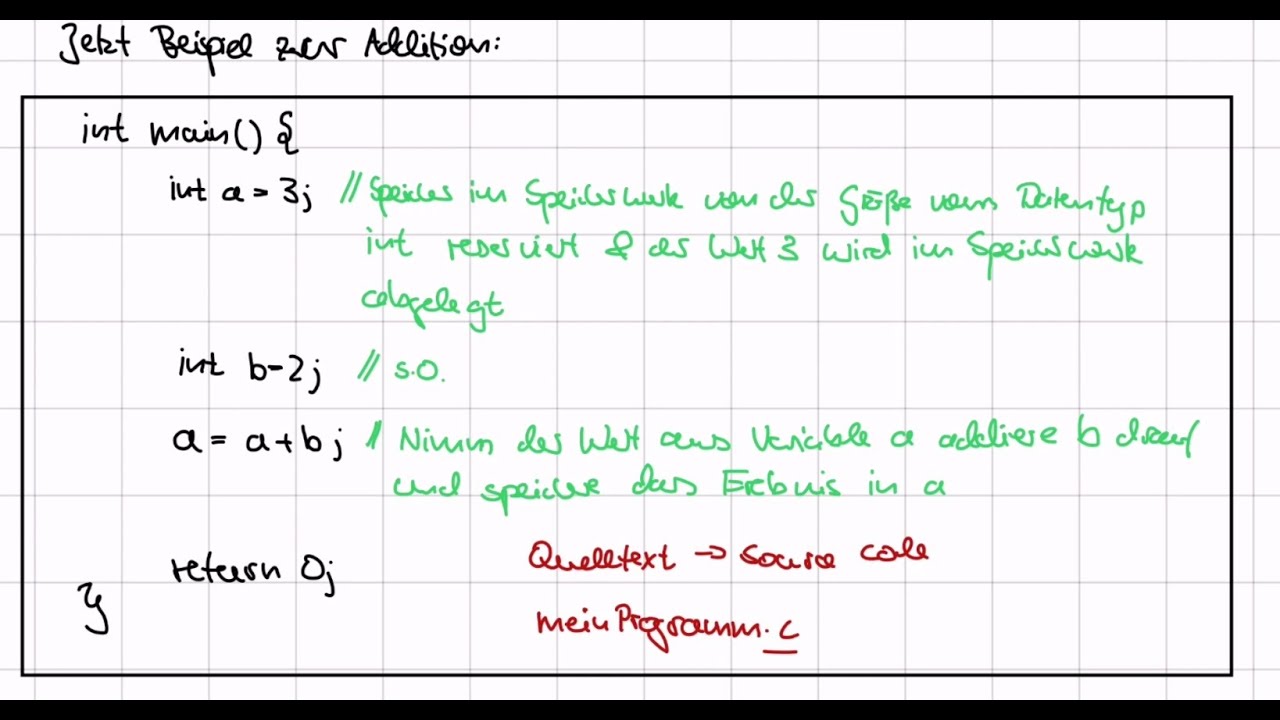 Jetzt Beispiel zur Addition:
int main() {
int a = 3; // Speicher im Speicherwerk von der Größe vom Datentyp
int reserviert & der Wert 3 wird im Speicherwerk
abgelegt
int b-2; // s.O.
a = a+b; // Nimm der Wert aus Variable a addiere b drauf
und speicher das Erebnis in a
return 0;
Quelltext → source code
meinProgramm.c
}